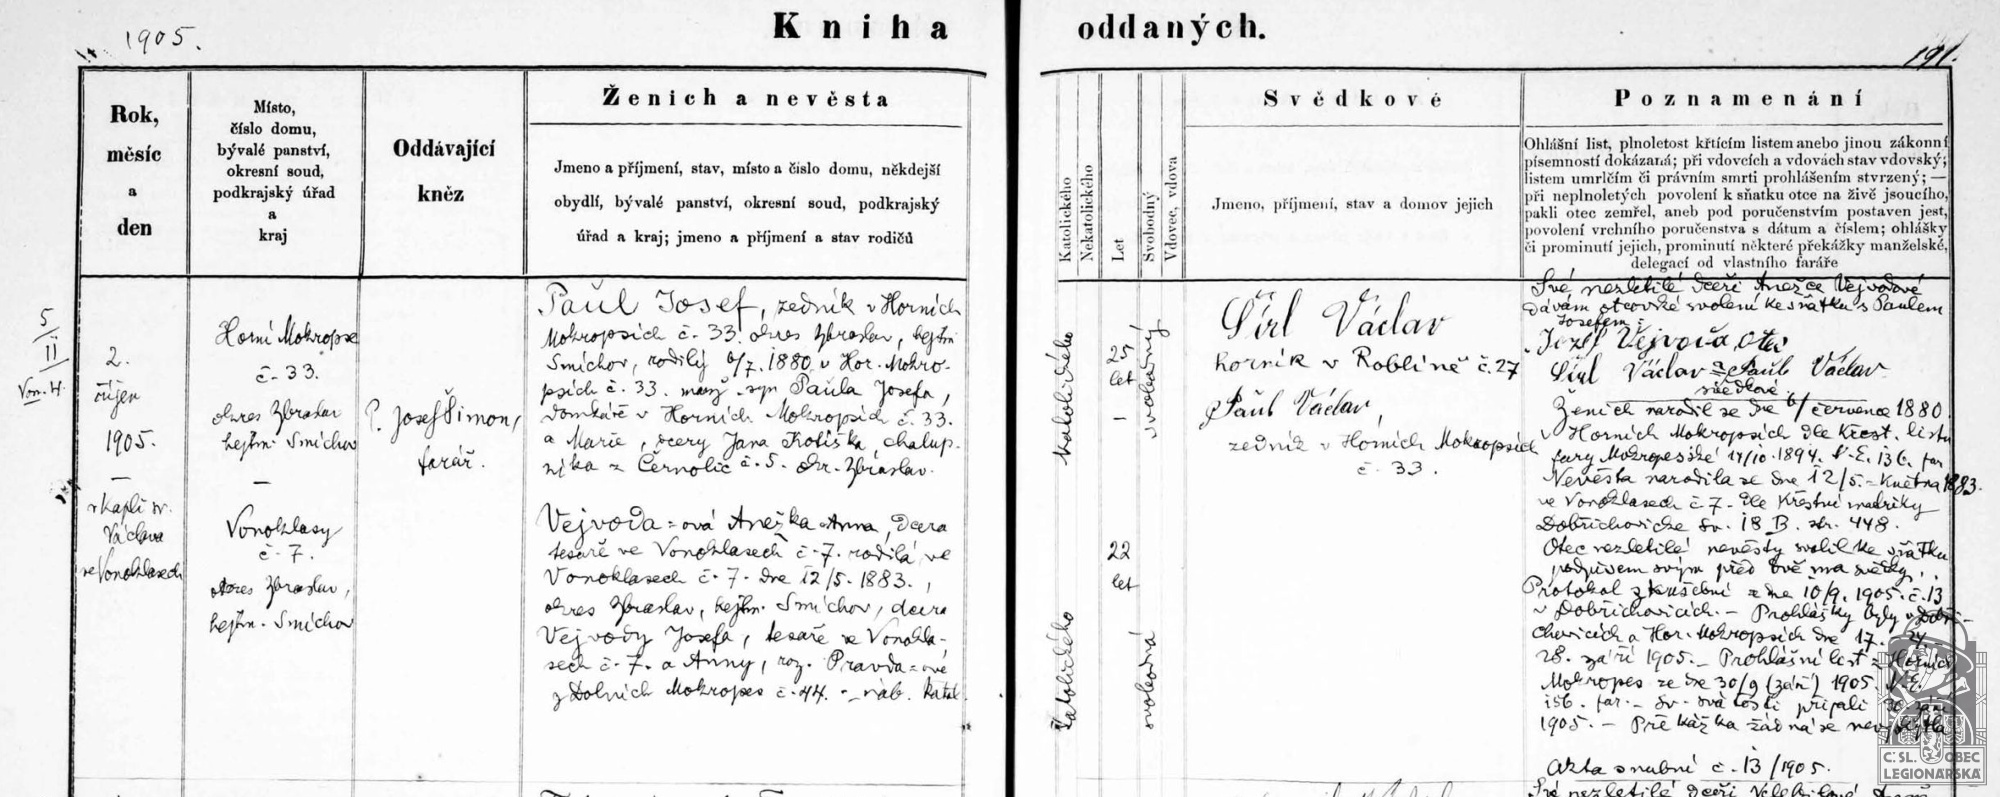 1905.
Kniha oddaných.
191.
Rok,
měsíc
a
den
Místo,
číslo domu,
bývalé panství,
okresní soud,
podkrajský úřad
a
kraj
Oddávající
kněz
Ženich a nevěsta
Jmeno a příjmení, stav, místo a číslo domu, někdejší
obydlí, bývalé panství, okresní soud, podkrajský
úřad a kraj; jmeno a příjmení a stav rodičů
Katolického
Nekatolického
Let
Svobodný
Vdovec, vdova
Svědkové
Jmeno, příjmení, stav a domov jejich
Poznamenání
Ohlášní list, plnoletost křtícím listem anebo jinou zákonní
písemností dokázaná; při vdovcích a vdovách stav vdovský;
listem umrlčím či právním smrti prohlášením stvrzený; —
při neplnoletých povolení k sňatku otce na živě jsoucího,
pakli otec zemřel, aneb pod poručenstvím postaven jest,
povolení vrchního poručenstva s dátum a číslem; ohlášky
či prominutí jejich, prominutí některé překážky manželské,
delegací od vlastního faráře
5/II
2.
říjen
1905.
—
v kapli sv.
Václava
ve Vonoklasech
Horní Mokropse
č. 33.
okres Zbraslav
hejtm. Smíchov
—
Vonoklasy
č. 7.
okres Zbraslav,
hejtm. Smíchov
P. Josef Šimon,
farář.
Paul Josef, zedník v Horních
Mokropsích č. 33. okres Zbraslav, hejtm.
Smíchov, rodilý 6/7. 1880 v Hor. Mokro-
psích č. 33. manž. syn Paula Josefa,
domkáře v Horních Mokropsích č. 33.
a Marie, dcery Jana Kotiška, chalup-
níka z Černolic č. 5. okr. Zbraslav.
Vejvoda=ová Anežka Anna, dcera
tesaře ve Vonoklasech č. 7. rodilá ve
Vonoklasech č. 7. dne 12/5. 1883.,
okres Zbraslav, hejtm. Smíchov, dcera
Vejvody Josefa, tesaře ve Vonokla-
sech č. 7. a Anny, roz. Pravda=ové
z Dolních Mokropes č. 44. – náb. katol.
katolického
25
let
svobodný
katolického
22
let
svobodná
Širl Václav
horník v Roblíně č. 27
Paul Václav,
zedník v Horních Mokropsích
č. 33.
Své nezletilé dceři Anežce Vejvodové
dávám otcovské svolení ke sňatku s Paulem
Josefem
Jozef Vejvoda, otec
Širl Václav Paul Václav
svědkové
Ženich narodil se dne 6/ července 1880.
v Horních Mokropsích dle křest. listu
fary Mokropeské 14/10. 1894. N.E. 136. far
Nevěsta narodila se dne 12/5. – května 1883.
ve Vonoklasech č. 7. dle křestní matriky
Dobřichovické sv. 18 B. str. 448.
Otec nezletilé nevěsty svolil ke sňatku
podpisem svým před dvěma svědky.
Protokol zkušební z dne 10/9. 1905. č. 13
v Dobřichovicích. – Prohlášky byly v Dobři-
chovicích a Hor. Mokropsích dne 17. 24
28. září 1905. – Prohlášní list z Horních
Mokropes ze dne 30/9 (září) 1905. N.E.
156. far. – Sv. svátosti přijali 30. září
1905. – Překážka žádná se nevyskytla
Akta snubní č. 13/1905.
Č.SL. OBEC
LEGIONÁŘSKÁ